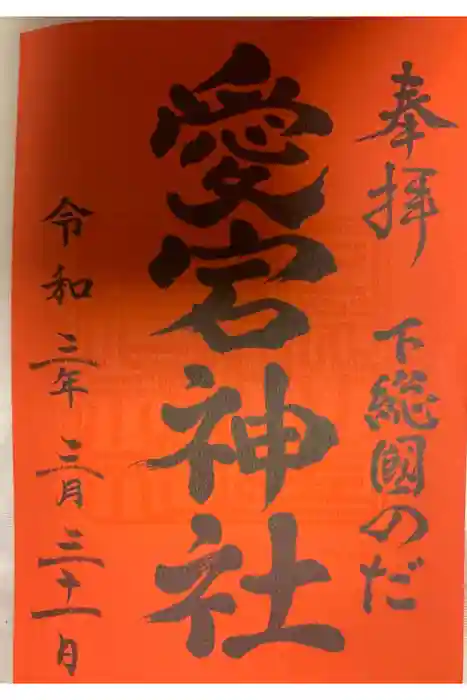 奉拝
下総國のだ
愛宕神社
令和三年三月三十一日